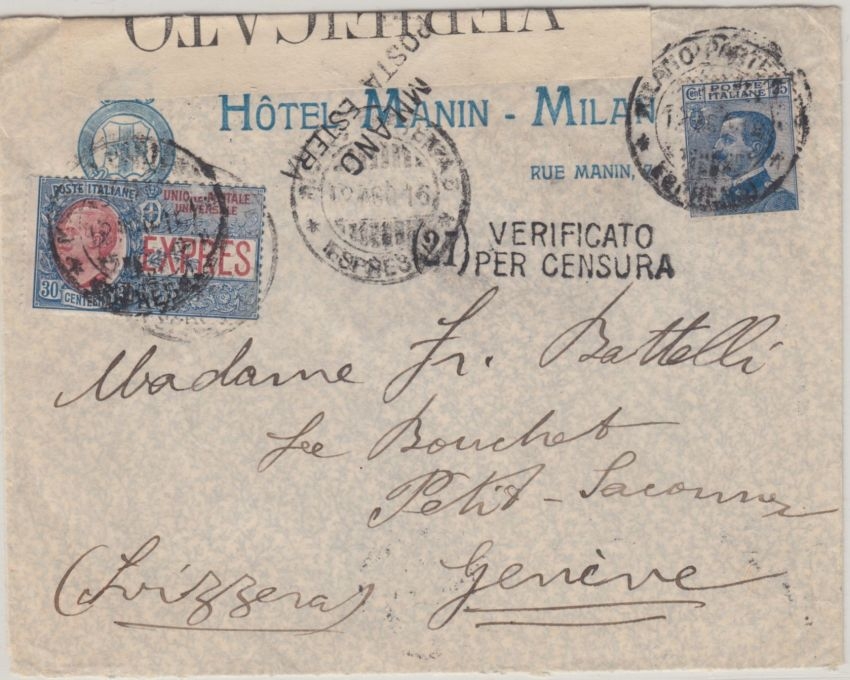 VERIFICATO
HÔTEL MANIN - MILAN
RUE MANIN, 7
POSTA ESTERA
MILANO
MILANO PARTENZA
ESPRESSI
POSTE ITALIANE
Cent 25
MILANO PARTENZA
12 AGO 16
ESPRESSI
POSTE ITALIANE
UNIONE POSTALE
UNIVERSALE
EXPRES
30
CENTESIMI
(21) VERIFICATO
PER CENSURA
Madame Fr. Battelli
Le Bouchet
Petit-Saconnex
Genève
(Svizzera)